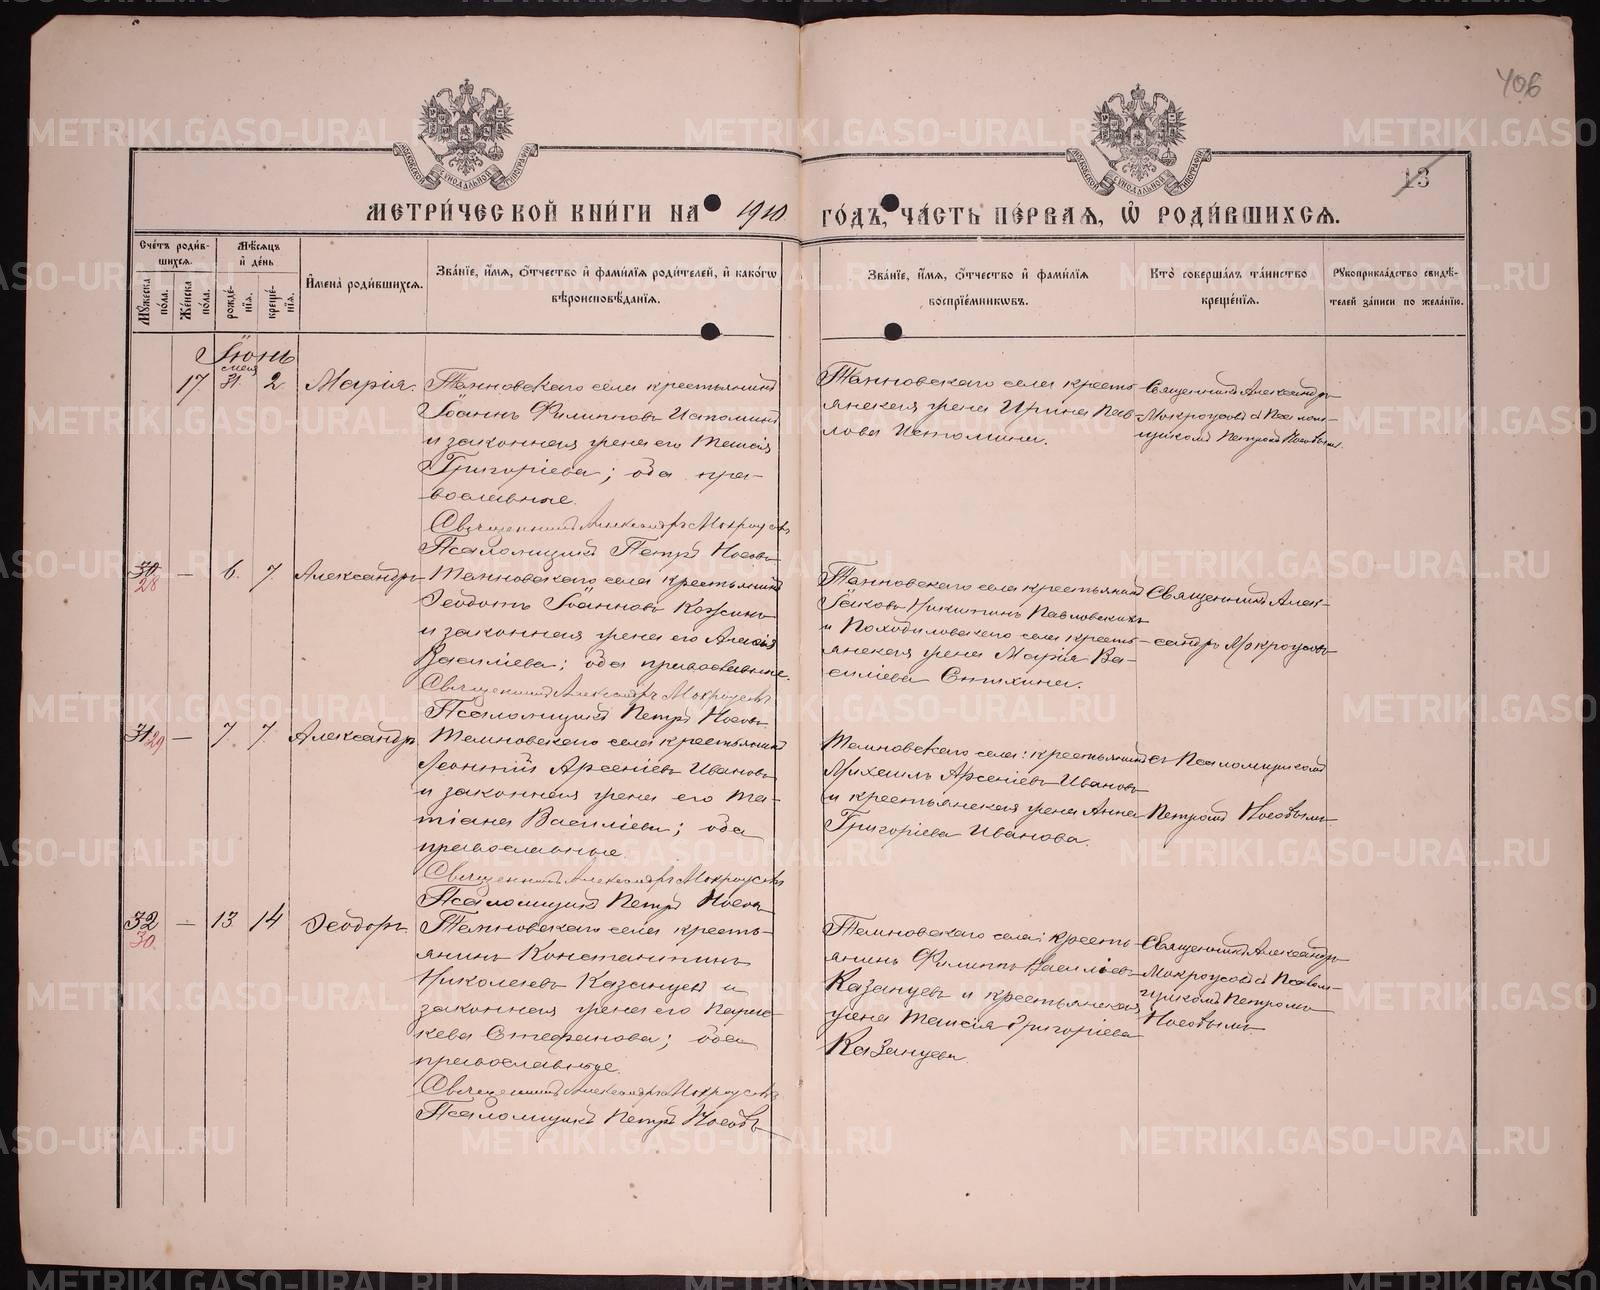 406
13
МЕТРИ́ЧЕСКОЙ КНИ́ГИ НА 1910 ГО́ДЪ, ЧА́СТЬ ПЕ́РВАЯ, Ѡ РОДИ́ВШИХСЯ.
Сче́тъ роди́вшихся.
Му́жеска по́ла.
Же́нска по́ла.
Мѣ́сяцъ и де́нь
рожде́нїя.
креще́нїя.
И҆мена̀ роди́вшихся.
Зва́нїе, и҆́мя, ѻ҆́тчество и҆ фами́лїя роди́телей, и҆ како́гѡ вѣроисповѣ́данїя.
Зва́нїе, и҆́мя, ѻ҆́тчество и҆ фами́лїя воспрїе́мниковъ.
Кто̀ соверша́лъ та́инство креще́нїя.
Рукоприкла́дство свидѣ́телей за́писи по жела́нїю.
Іюнь
мая
17. 31. 2. Марія.
Темновскаго села крестьянинъ
Іоаннъ Филипповъ Истоминъ
и законная жена его Таисія
Григоріева; оба пра-
вославные.
Священникъ Александръ Мокроусовъ
Псаломщикъ Петръ Носовъ
Темновскаго села кресть-
янская жена Ирина Пав-
лова Истомина.
Священникъ Александръ
Мокроусовъ съ Псалом-
щикомъ Петромъ Носовымъ.
30 28 — 6. 7. Александръ
Темновскаго села крестьянинъ
Ѳеодотъ Іоанновъ Кожинъ
и законная жена его
Василіева; оба православные.
Священникъ Александръ Мокроусовъ
Псаломщикъ Петръ Носовъ
Темновскаго села крестьянинъ
Іаковъ Никитинъ Павловскихъ
и Походиловскаго села кресть-
янская жена Марія Ва-
силіева Снихина.
Священникъ Алек-
сандръ Мокроусовъ
31 29 — 7. 7. Александръ
Темновскаго села крестьянинъ
Леонтій Арсеніевъ Ивановъ
и законная жена его Та-
тіана Василіева; оба
православные.
Священникъ Александръ Мокроусовъ
Псаломщикъ Петръ Носовъ
Темновскаго села: крестьянинъ
Михаилъ Арсеніевъ Ивановъ
и крестьянская жена Анна
Григоріева Иванова.
съ Псаломщикомъ
Петромъ Носовымъ
32 30. — 13 14 Ѳеодоръ
Темновскаго села кресть-
янинъ Константинъ
Николаевъ Казанцевъ и
законная жена его Парас-
кева Стефанова; оба
православные.
Священникъ Александръ Мокроусовъ
Псаломщикъ Петръ Носовъ
Темновскаго села: кресть-
янинъ Филиппъ Василіевъ
Казанцевъ и крестьянская
жена Таисія Григоріева
Казанцева.
Священникъ Александръ
Мокроусовъ съ Псалом-
щикомъ Петромъ
Носовымъ
METRIKI.GASO-URAL.RU